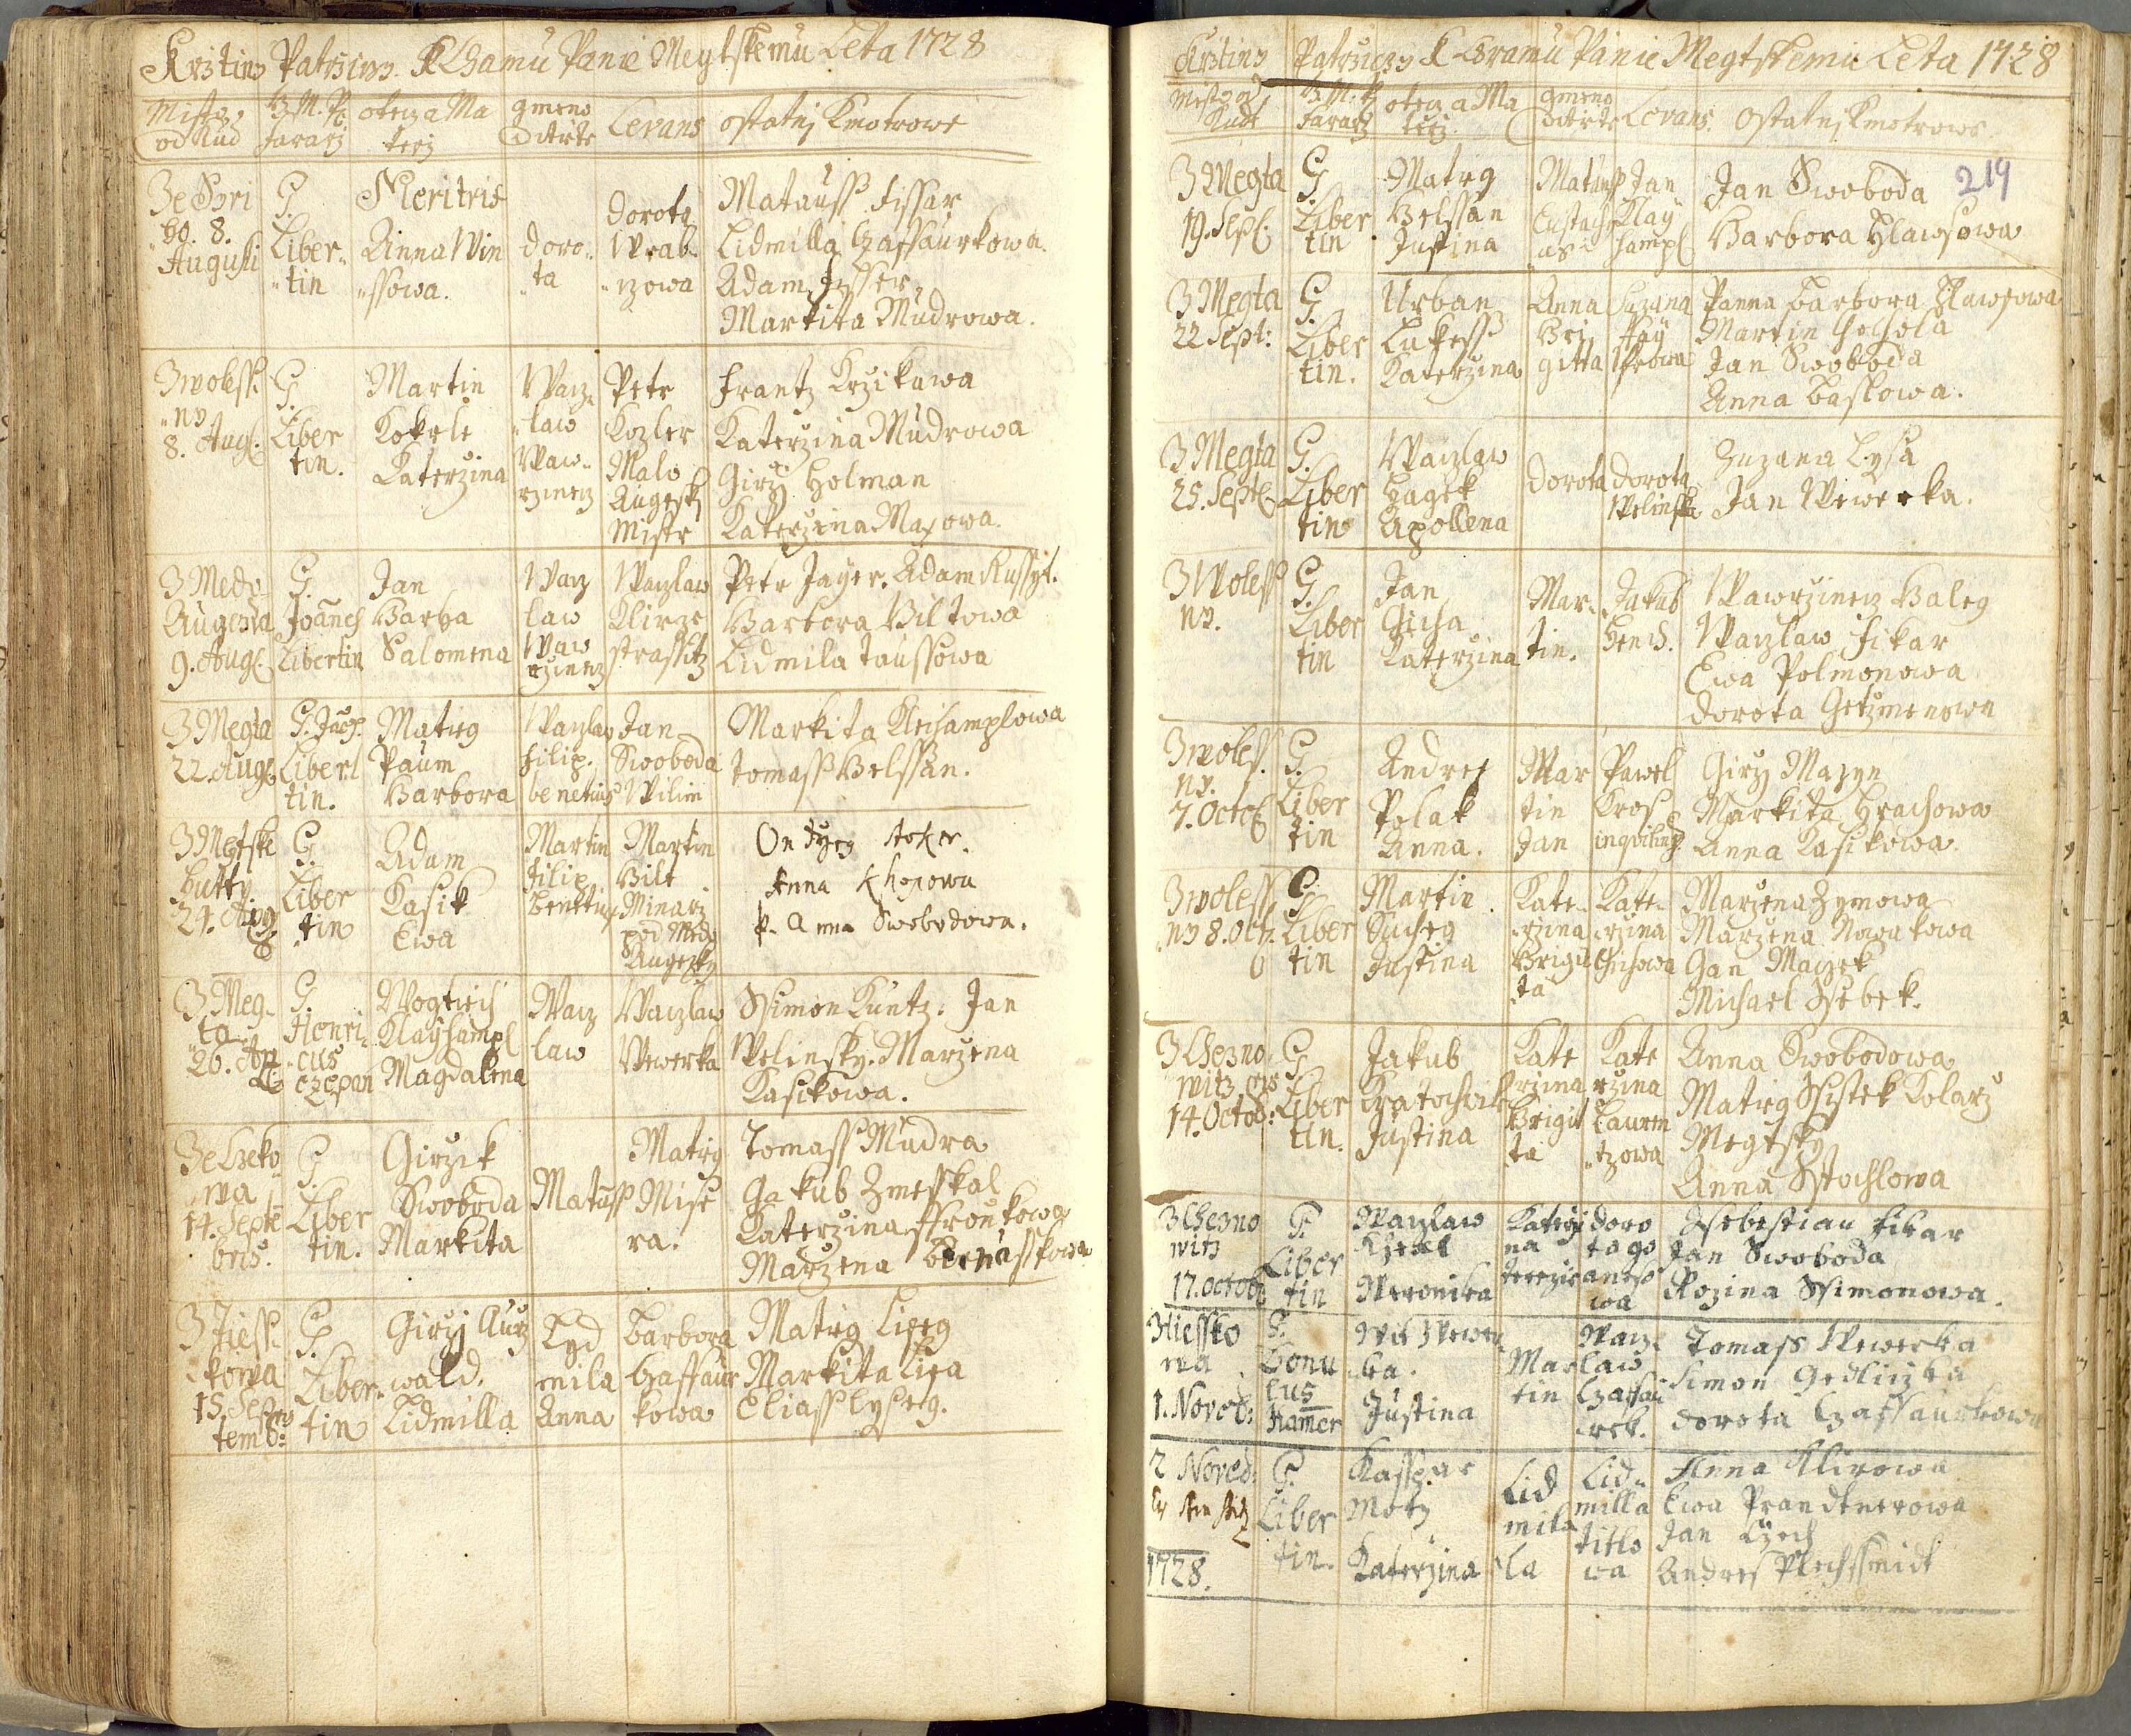 Krztiny Patrzicy K Chramu Panie Megtskemu Leta 1728
Misto od kud
B. M. P. Fararz
otecz a Materz
gmeno ditiete
Levans
ostatnj Kmotrowe
8. Augusti
G. Libertin
Meritris Anna Winssowa.
Dorota
Dorota Wrabczowa
Matauss Fissar
Lidmilla Czassaurkowa.
Adam Jsser,
Markita Mudrowa.
Z wolessny
8. Aug.
G. Libertin.
Martin Kokrle
Katerzina
Waczlaw Wawrzinecz
Petr Kozler Malo Augeskj Mistr
Frantz Krzikawa
Katerzina Mudrowa
Girzj Holman
Katerzina Maxowa.
Z Medo Augezda
9. Aug.
G. Joanes Libertin
Jan Barba
Salomena
Waczlaw Wawrzinecz
Waczlaw Klirze strassitz
Petr Jayer. Adam Kussyt.
Barbora Biltowa
Lidmila Taussowa
Z Megta
22. Aug.
G. Jacq. Libertin.
Matieg Paum
Barbora
Waczlaw Filip. benetius
Jan Swoboda Wilim
Markita Kleihamplowa
Tomass Belssan.
Z Megtske hutty
24. Aug.
G. Libertin
Adam Kasik
Ewa
Martin Filip Benetius
Martin Bilt Minarz pod Medo Augezky
Ondrzeg
Anna
p. Anna Swobodowa.
Z Megta
26.
G. Henricus czepan
Wogtiech Klayhampl
Magdalena
Waczlaw
Waczlaw Wewerka
Ssimon Kuntz. Jan
Welinsky. Marzena
Kasikowa.
14. Septembris.
G. Libertin.
Girzik Swoboda
Markita
Matauss
Matieg Misera.
Tomass Mudra
Gakub Zmesskal
Katerzina Ffroukowa
Marzena Bernasskowa
Z Tiesskowa
15. Septemb:
G. Libertin
Girzj Kurzwald.
Lidmilla
Lydmila Anna
Barbora Czassaurkowa
Matieg Lipeg
Markita Lipa
Eliass Lyseg.
Krztiny Patrziczy K Chramu Panie Megtskemu Leta 1728
Misto od kud
B. M. P. Fararz
otecz a Materz
gmeno ditiete
Levans.
Ostatnj Kmotrowe
219
Z Megta
19. Sept.
G. Libertin
Matieg Belssan
Justina
Matauss Eustachias
Jan Klayhampl
Jan Swoboda
Barbora Hlawsowa
Z Megta
22 Sept:
G. Libertin.
Urban Lukess
Katerzina
Anna Brigitta
Zuzana
Panna Barbora Hlawsowa
Martin Chochola
Jan Swoboda
Anna Baskowa.
Z Megta
25. Sept.
G. Libertin
Waczlaw Hagek
Apollena
Dorota
Dorota Welinska
Zuzana Lysa
Jan Wewerka.
Z Wolessny.
G. Libertin
Jan Cjicha
Katerzina
Martin.
Jakub Hench.
Wawrzinecz Baleg
Waczlaw Fikar
Ewa Polmonowa
Dorota Getzmenowa
Z wolessny.
7. Octob
G. Libertin
Andres Polak
Anna.
Martin Jan
Pawel Kros inqvilinus
Girzj Mazyn
Markita Hrachowa
Anna Kasikowa.
Z wolessny 8. Oct.
G. Libertin
Martin Sucheg
Justina
Katerzina Brigita
Katerzina Chichowa
Marzena Zymowa
Marzena Nowakowa
Gan Maczek
Michael Ssebek.
Z Cheznowitz
14. Octob:
G. Libertin.
Jakub Kratochwil
Justina
Katerzina Brigitta
Katerzina Laurentzowa
Anna Swobodowa
Matieg Ssistek Kolarz
Megtsky
Anna Sstochlowa
Z Cheznowitz
17. Octob
G. Libertin
Waczlaw
Weronika
Katerzina Terezie
Dorota
Ssebestian Fikar
Jan Swoboda
Rozina Ssimonowa.
Z Tiesskowa
1. Novēb:
G. Honulus Hamer
Wit Wewerka.
Justina
Martin
Waczlaw Czassaurek.
Tomass Wewerka
Simon Gedliczka
Dorota Czassaurkowa
2 Novēb:
1728.
G. Libertin.
Kasspar Motz
Katerzina
Lidmila
Lidmilla Titlowa
Anna Klirowa
Ewa Prandtnerowa
Jan Czech
Andres Plechssmidt